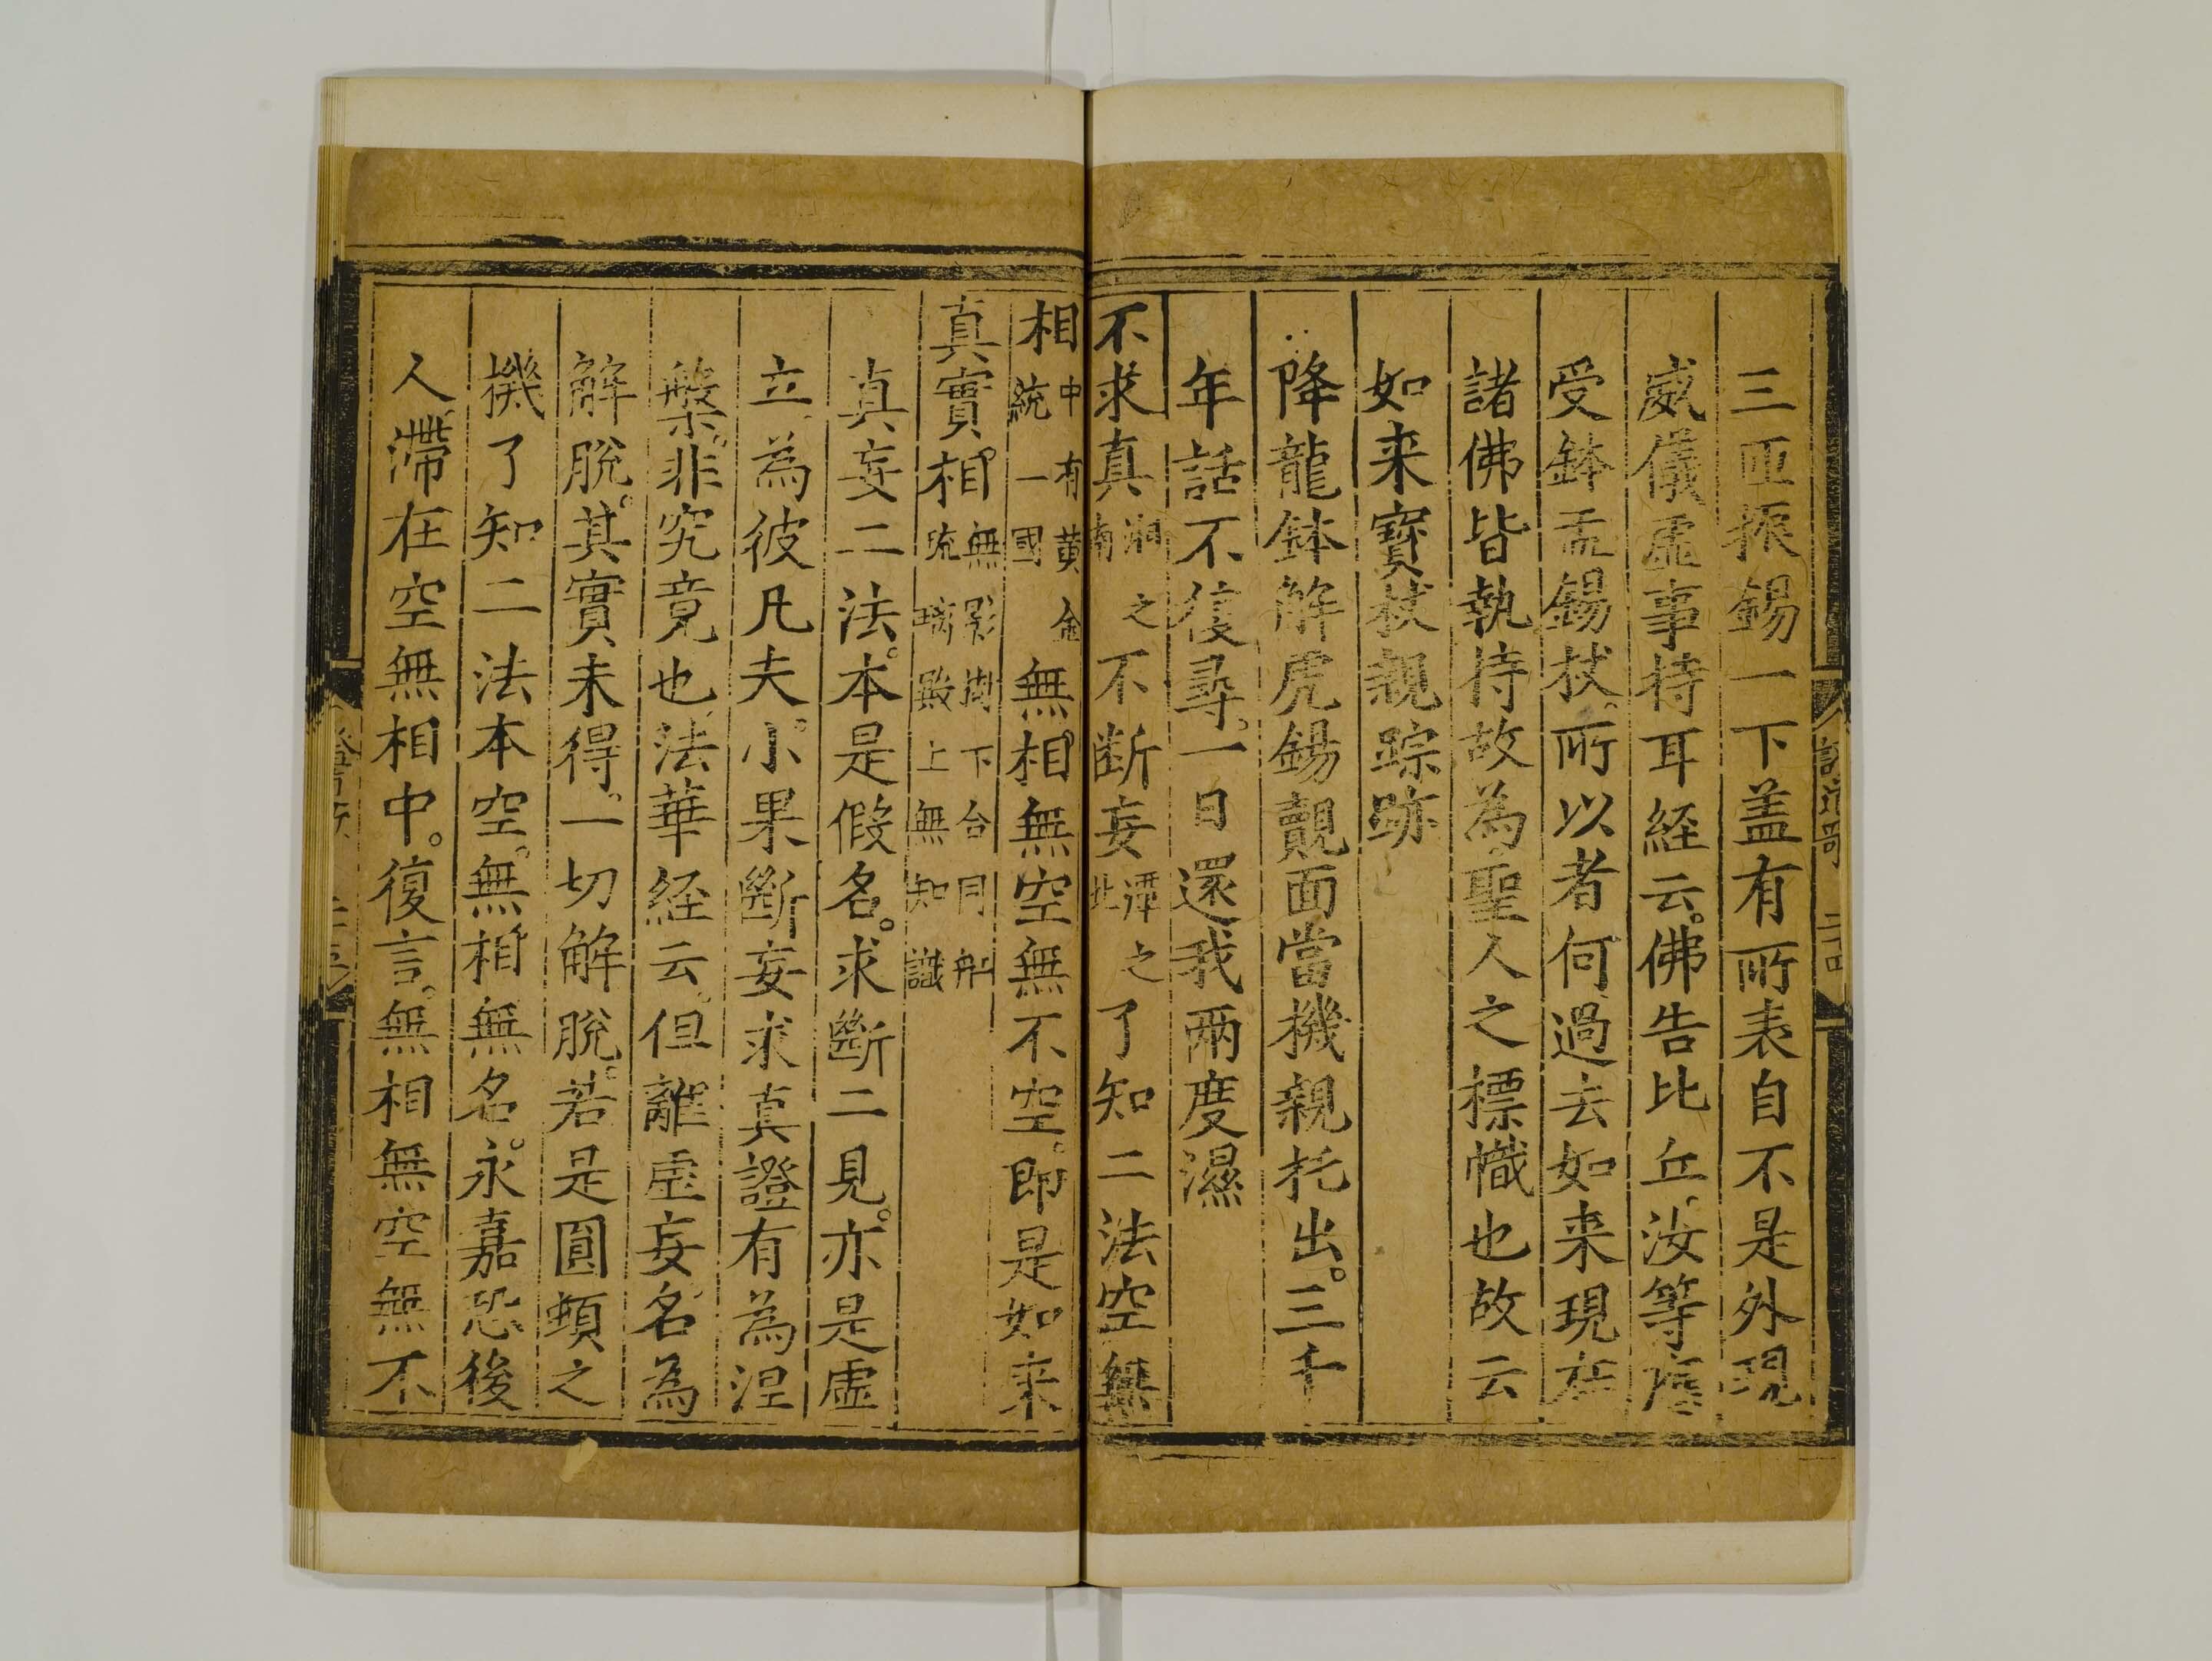 三匝振錫一下盖有所表自不是外現
威儀虛事持耳経云佛告比丘汝等應
受鉢盂錫杖所以者何過去如来現在
諸佛皆執持故為聖人之標幟也故云
如来寳杖親踪跡
降龍鉢解虎錫覿面當機親托出三千
年話不復尋一日還我兩度濕
不求真湘之南不断妄潭之北了知二法空無
證道歌 二十四
相中有黄金統一國無相無空無不空即是如来
真實相無影樹下合同船琉璃殿上無知識
真妄二法本是假名求斷二見亦是虛
立為彼凡夫小果斷妄求真證有為涅
槃非究竟也法華経云但離虛妄名為
解脫其實未得一切解脫若是圓頓之
機了知二法本空無相無名永嘉恐後
人滯在空無相中復言無相無空無不